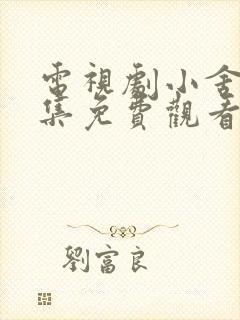 電視劇小舍
集免費觀看
劉富良